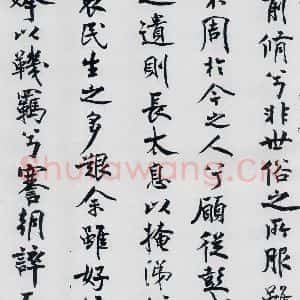 前脩兮非世俗之所服雖
周於今之人兮願從彭
之遺則長太息以掩涕
哀民生之多艱余雖好
以鞿羈兮謇朝誶
Shufawang.Cn